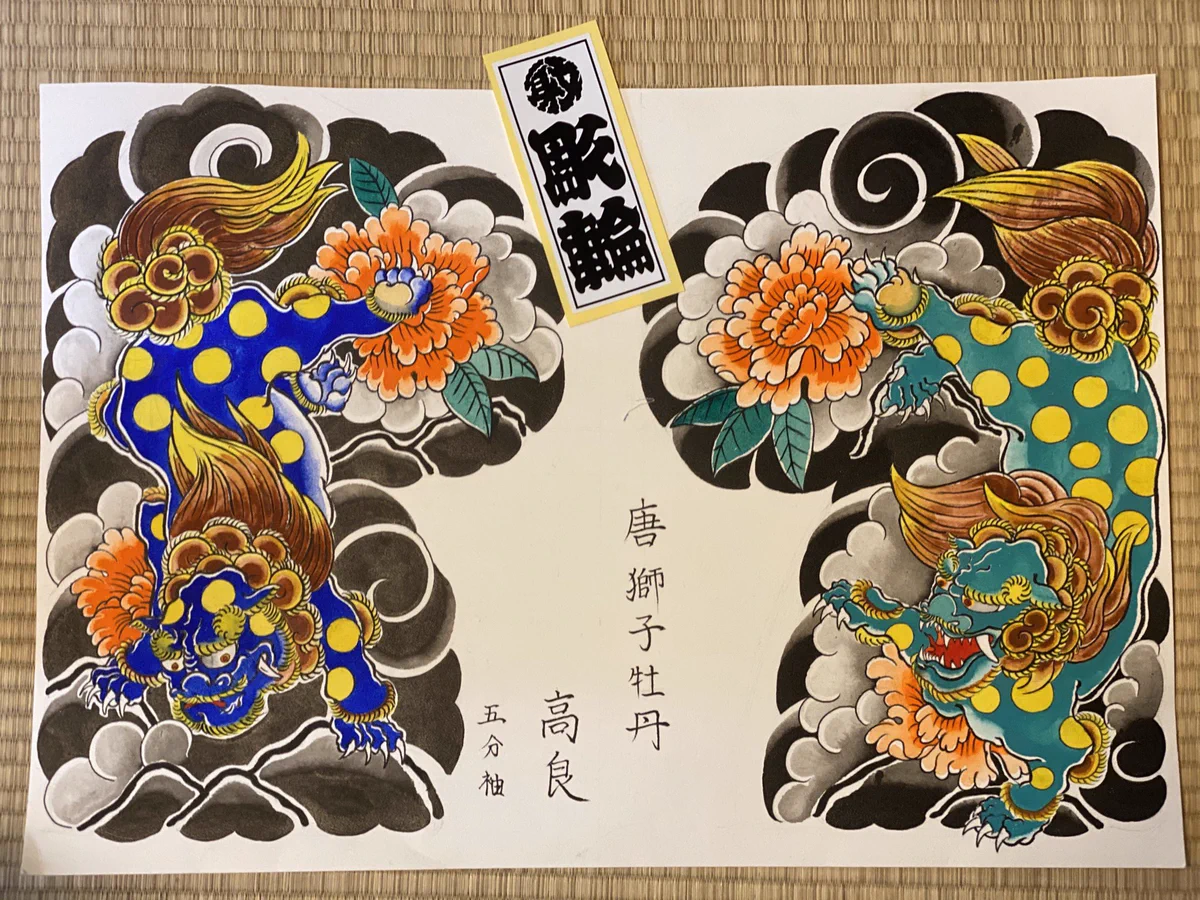 彫輪
唐獅子牡丹
高良
五分袖